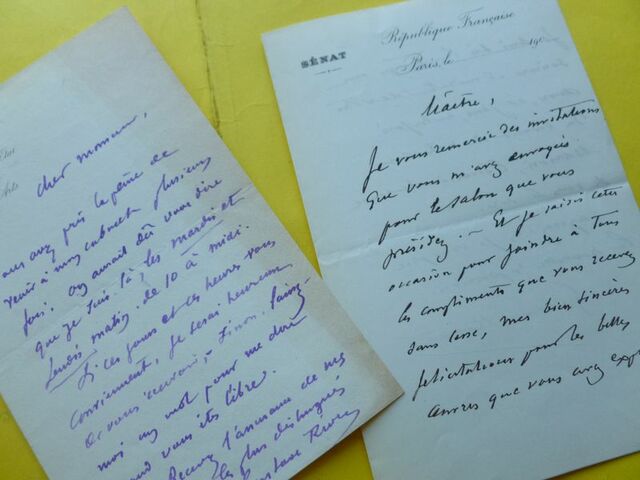 Cher Monsieur,
avez pris la peine de
venir à mon cabinet plusieurs
fois. On aurait dû vous dire
que je suis là, les mardis et
Jeudis matin, de 10 à midi.
Si ces jours et ces heures vous
conviennent, je serai heureux
de vous recevoir, - Sinon, laissez
moi un mot pour me dire
quand vous êtes libre.
Recevez l'assurance de mes
les plus distingués
SÉNAT
République Française
Paris, le 190
Maître,
Je vous remercie des invitations
que vous m'avez envoyées
pour le salon que vous
présidez. - Et je saisis cette
occasion pour joindre à tous
les compliments que vous recevez
sans cesse, mes bien sincères
félicitations pour les belles
œuvres que vous avez exp